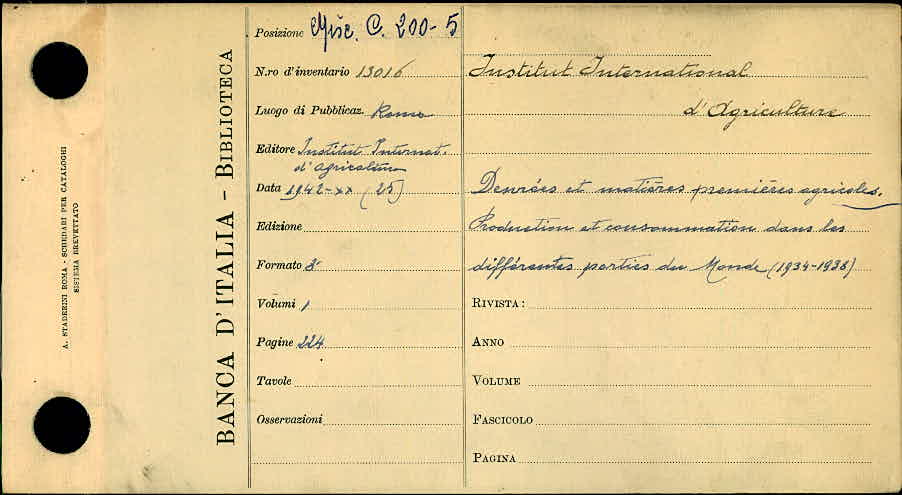 A. STADERINI ROMA - SCHEDARI PER CATALOGHI
SISTEMA BREVETTATO
BANCA D'ITALIA - BIBLIOTECA
Posizione Misc. C. 200-5
N.ro d'inventario 13016
Luogo di Pubblicaz. Roma
Editore Institut Internat.
d'agriculture
Data 1942-XX (25)
Edizione
Formato 8°
Volumi 1
Pagine 224
Tavole
Osservazioni
Institut International
d'Agriculture
Denrées et matières premières agricoles.
Production et consommation dans les
différentes parties du Monde (1934-1938)
RIVISTA:
ANNO
VOLUME
FASCICOLO
PAGINA